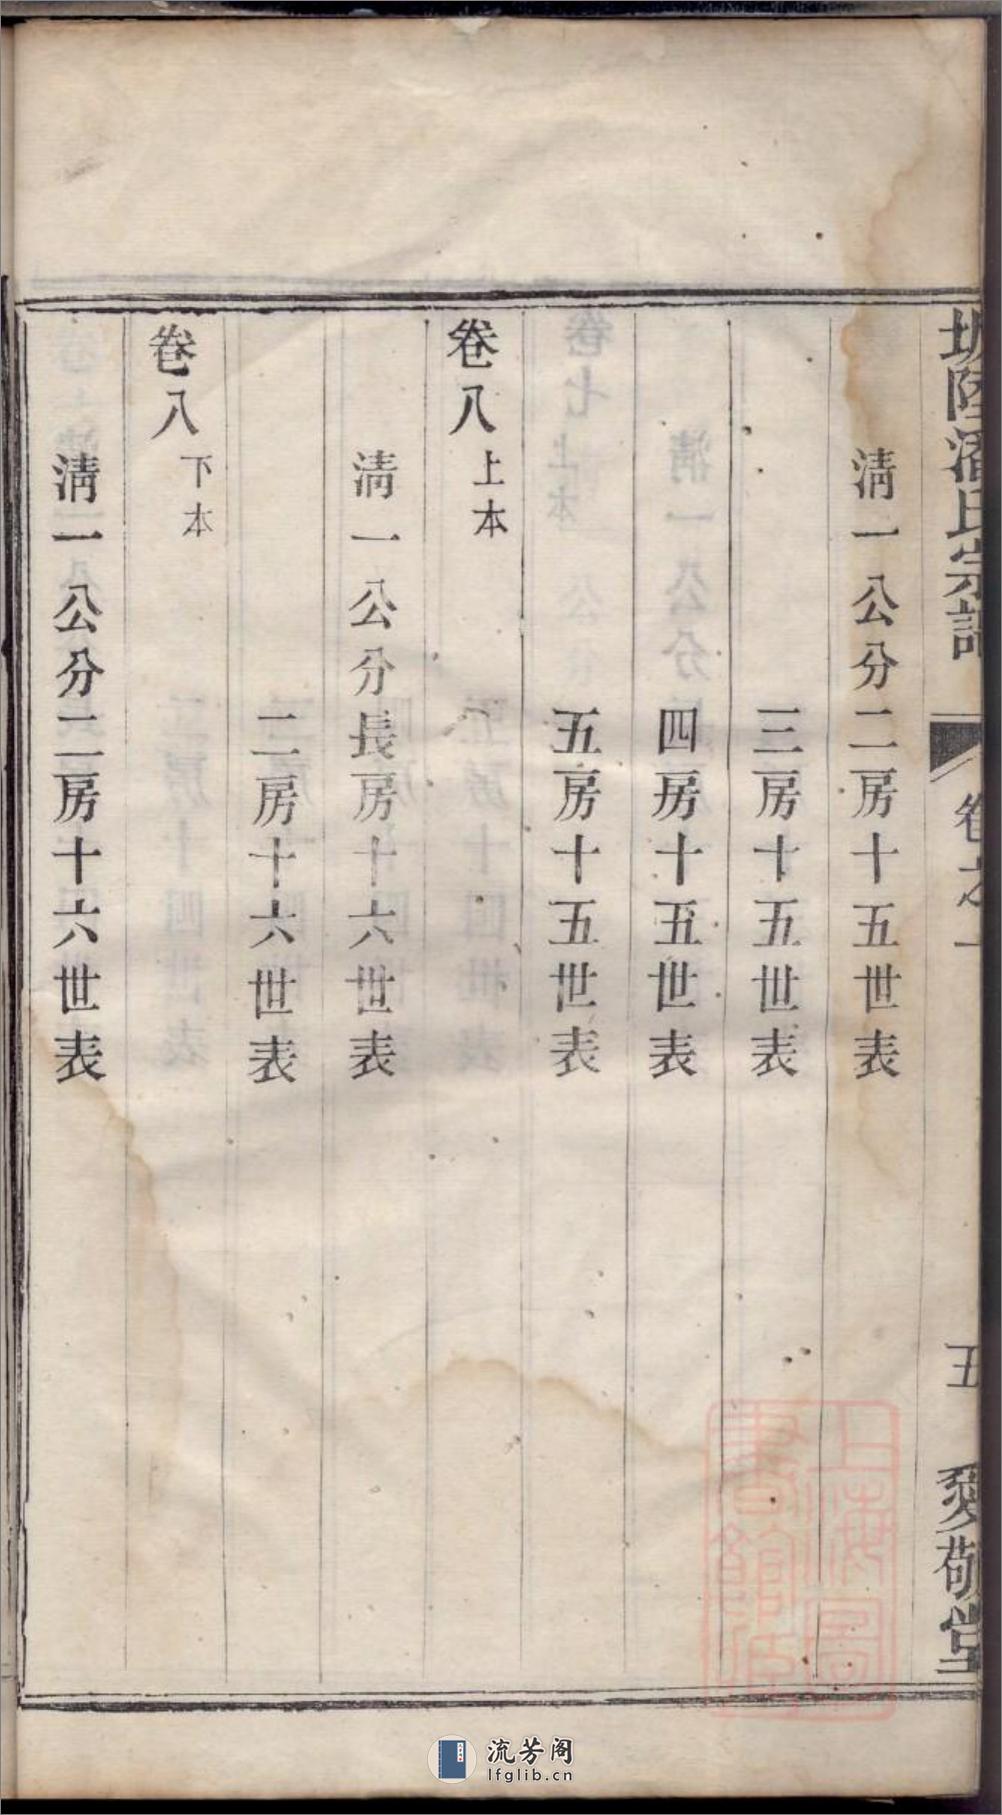 坡陸潘氏宗譜
卷之一
五
愛敬堂
清一公分二房十五世表
三房十五世表
四房十五世表
五房十五世表
卷八上本
清一公分長房十六世表
二房十六世表
卷八下本
清一公分二房十六世表
上海圖書館藏
流芳阁
lfglib.cn